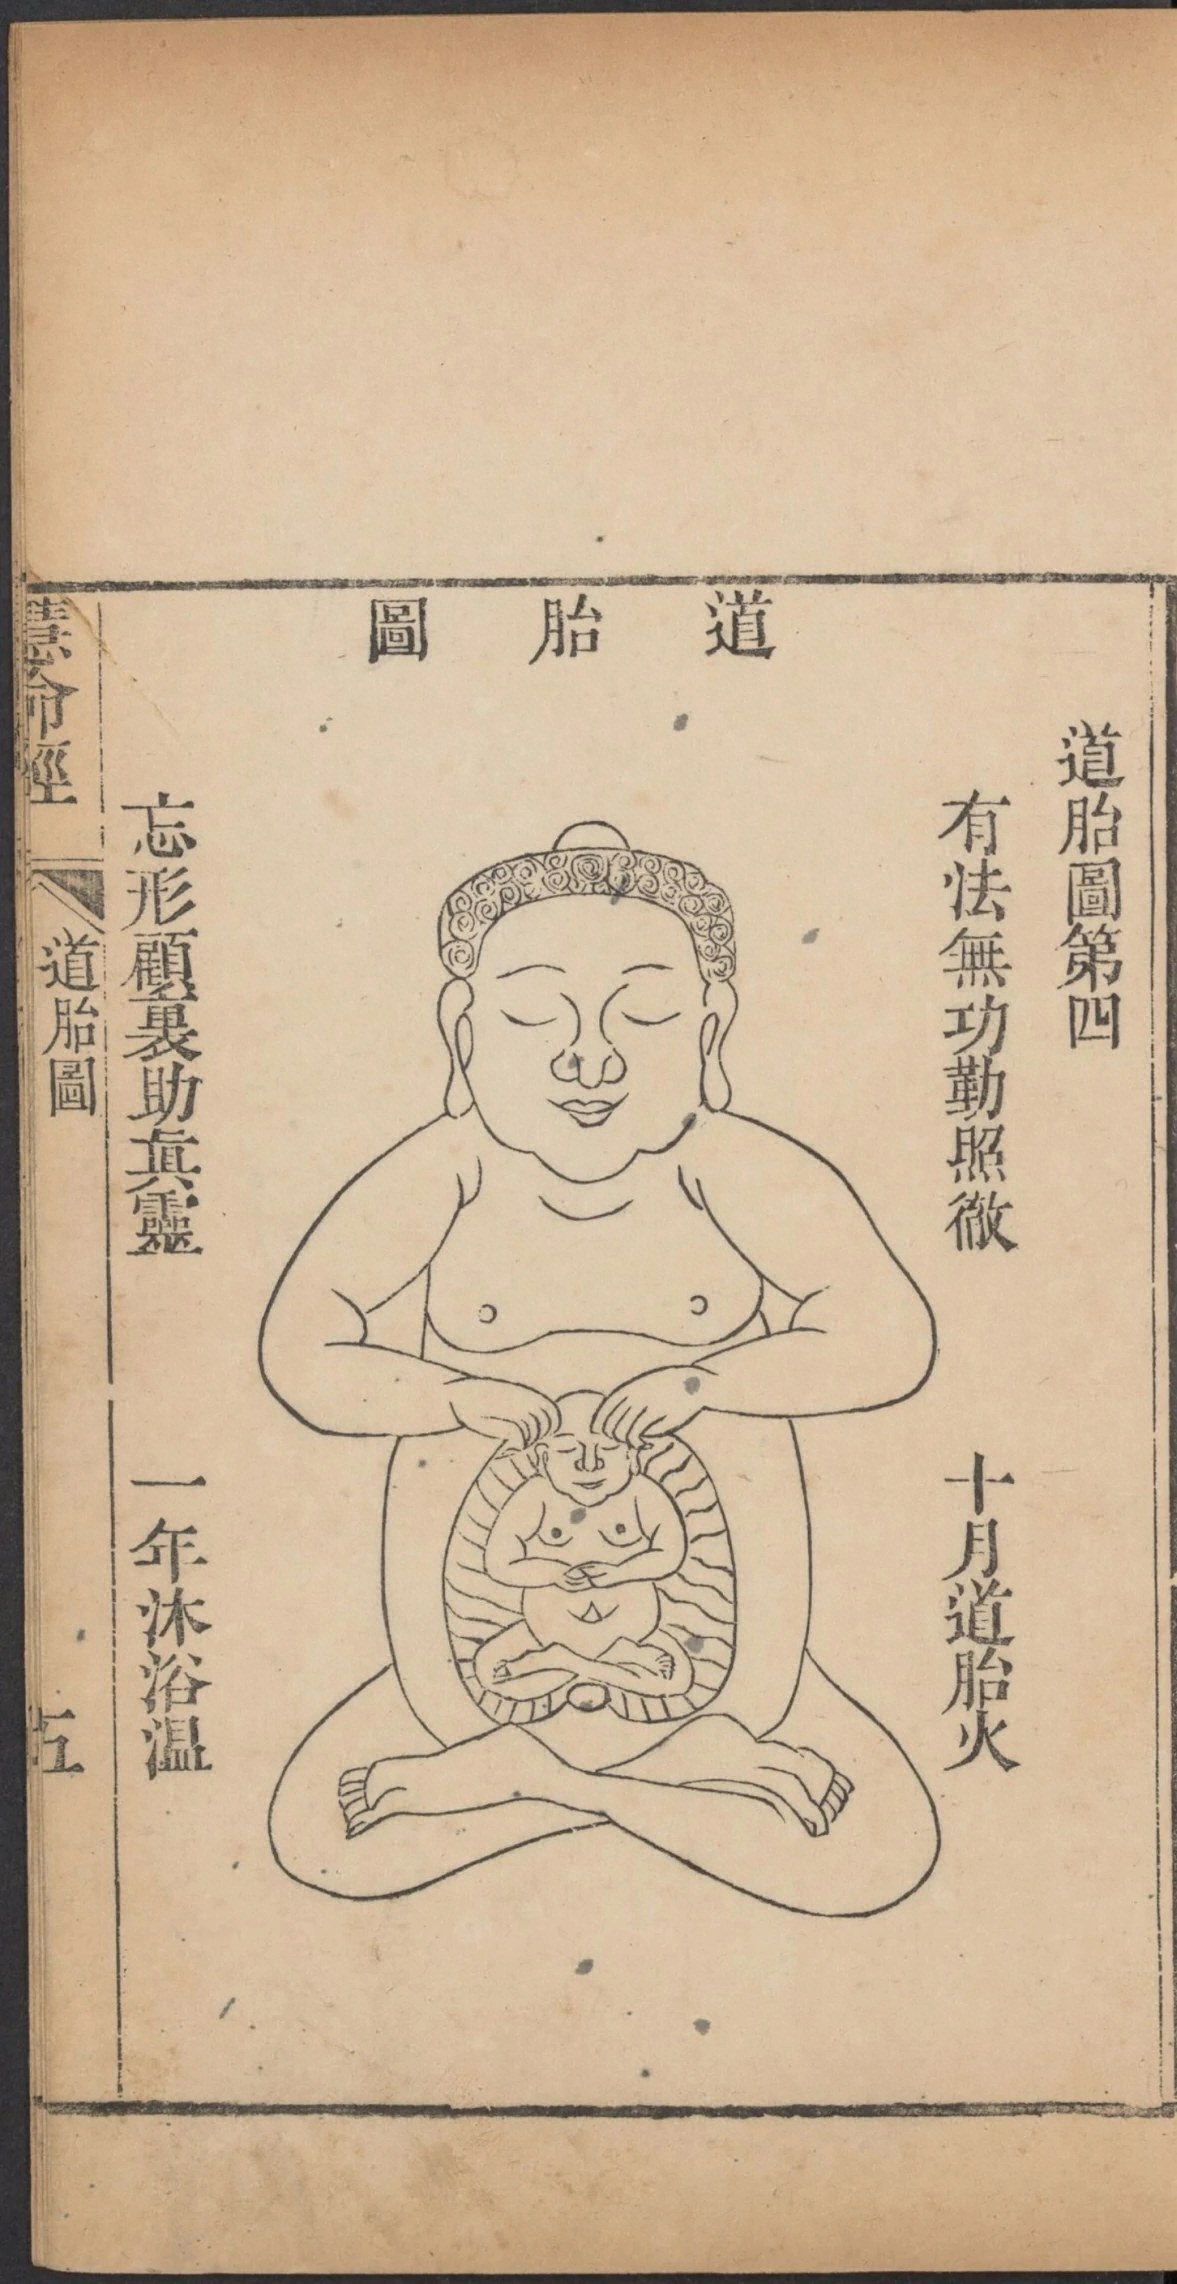 道胎圖第四
道胎圖
有法無功勤照徹
忘形顧裏助眞靈
十月道胎火
一年沐浴温
慧命經
道胎圖
五